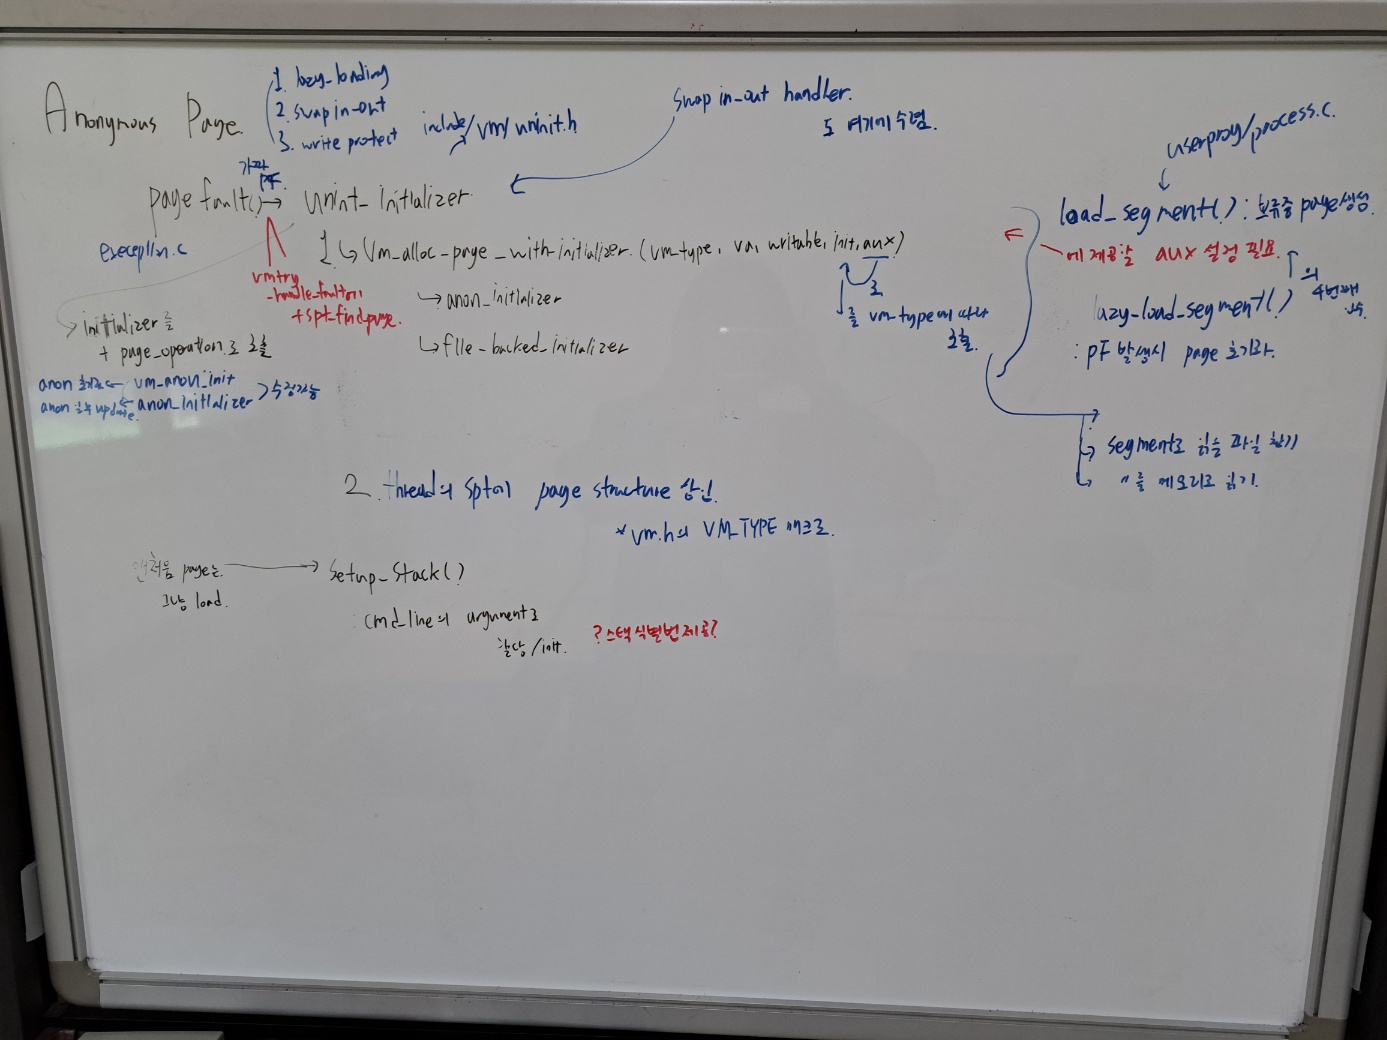 Anonynous Page.
1. lazy_loading
2. swap in-out
3. write protect
include/vm/uninit.h
swap in-out handler.
도 여기에 수렴.
userprog/process.c.
가짜
PF.
page fault() → unint_initializer.
exeception.c
vm try
_handle_fault에
+ spt_find_page.
1 ↳ Vm_alloc_page_with_initializer. (vm_type, va, writable, init, aux)
로
↳ anon_initializer
를 vm_type에 따라
호출.
↳ file_backed_initializer
initializer를
+ page_operation로 호출
anon ← vm_anon_init
anon update ← anon_initializer > 수정가능
load_segment() : page 생성.
에 제공할 aux 설정 필요.
의
4번째
lazy_load_segment()
: PF 발생시 page 초기화.
segment로 읽을 파일 찾기
〃를 메모리로 읽기.
2. thread의 spt에 page structure 삽입.
* vm.h의 VM_TYPE 매크로.
맨처음 page는 → Setup_Stack()
그냥 load.
: cmd_line의 argument로
할당/init.
? 스택 식별법 제공?